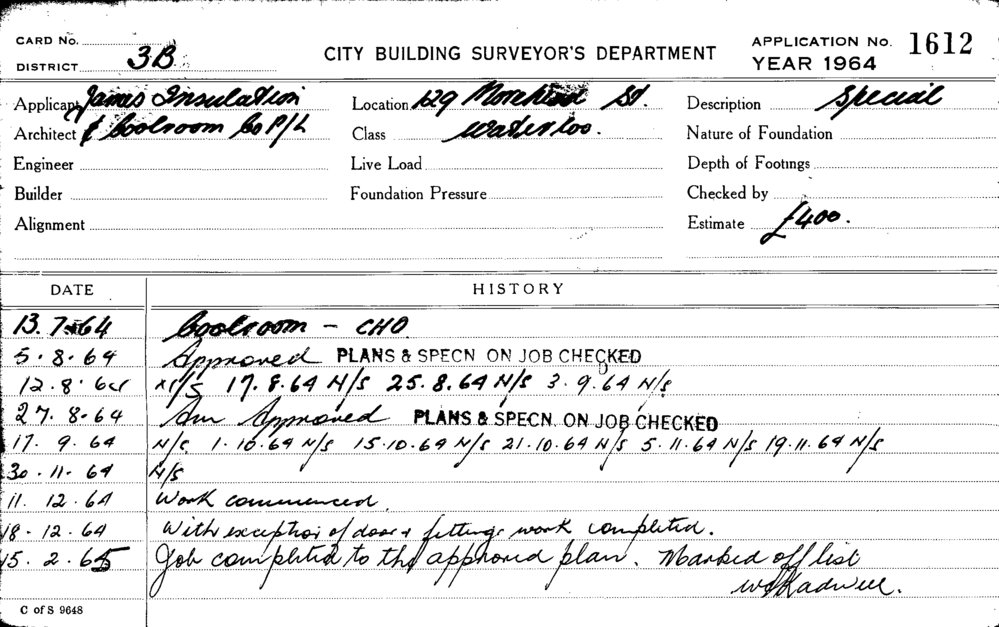 CARD No.
DISTRICT 3B
CITY BUILDING SURVEYOR'S DEPARTMENT
APPLICATION No. 1612
YEAR 1964
Applicant James Insulation
Architect & Coolroom Co P/L
Engineer
Builder
Alignment
Location 129 Morehead St.
Class Waterloo.
Live Load
Foundation Pressure
Description Special
Nature of Foundation
Depth of Footings
Checked by
Estimate £400.
DATE HISTORY
13.7.64 Coolroom - CHO
5.8.64 Approved PLANS & SPECN ON JOB CHECKED
12.8.64 N/S 17.8.64 N/S 25.8.64 N/S 3.9.64 N/S
27.8.64 Am Approved PLANS & SPECN. ON JOB CHECKED
17.9.64 N/S. 1.10.64 N/S 15.10.64 N/S 21.10.64 N/S 5.11.64 N/S 19.11.64 N/S
30.11.64 N/S
11.12.64 Work commenced.
18.12.64 With exception of door & fittings work completed.
15.2.65 Job completed to the approved plan. Marked off list
C of S 9648